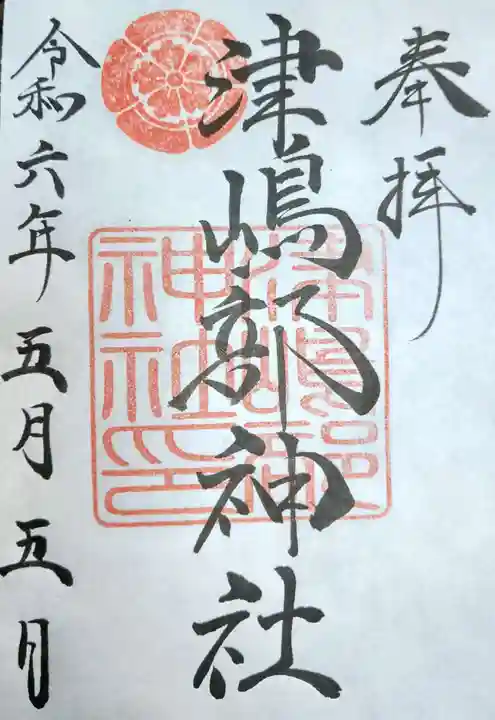 奉拝
津嶋部神社
津嶋部
神社印
令和六年五月五日